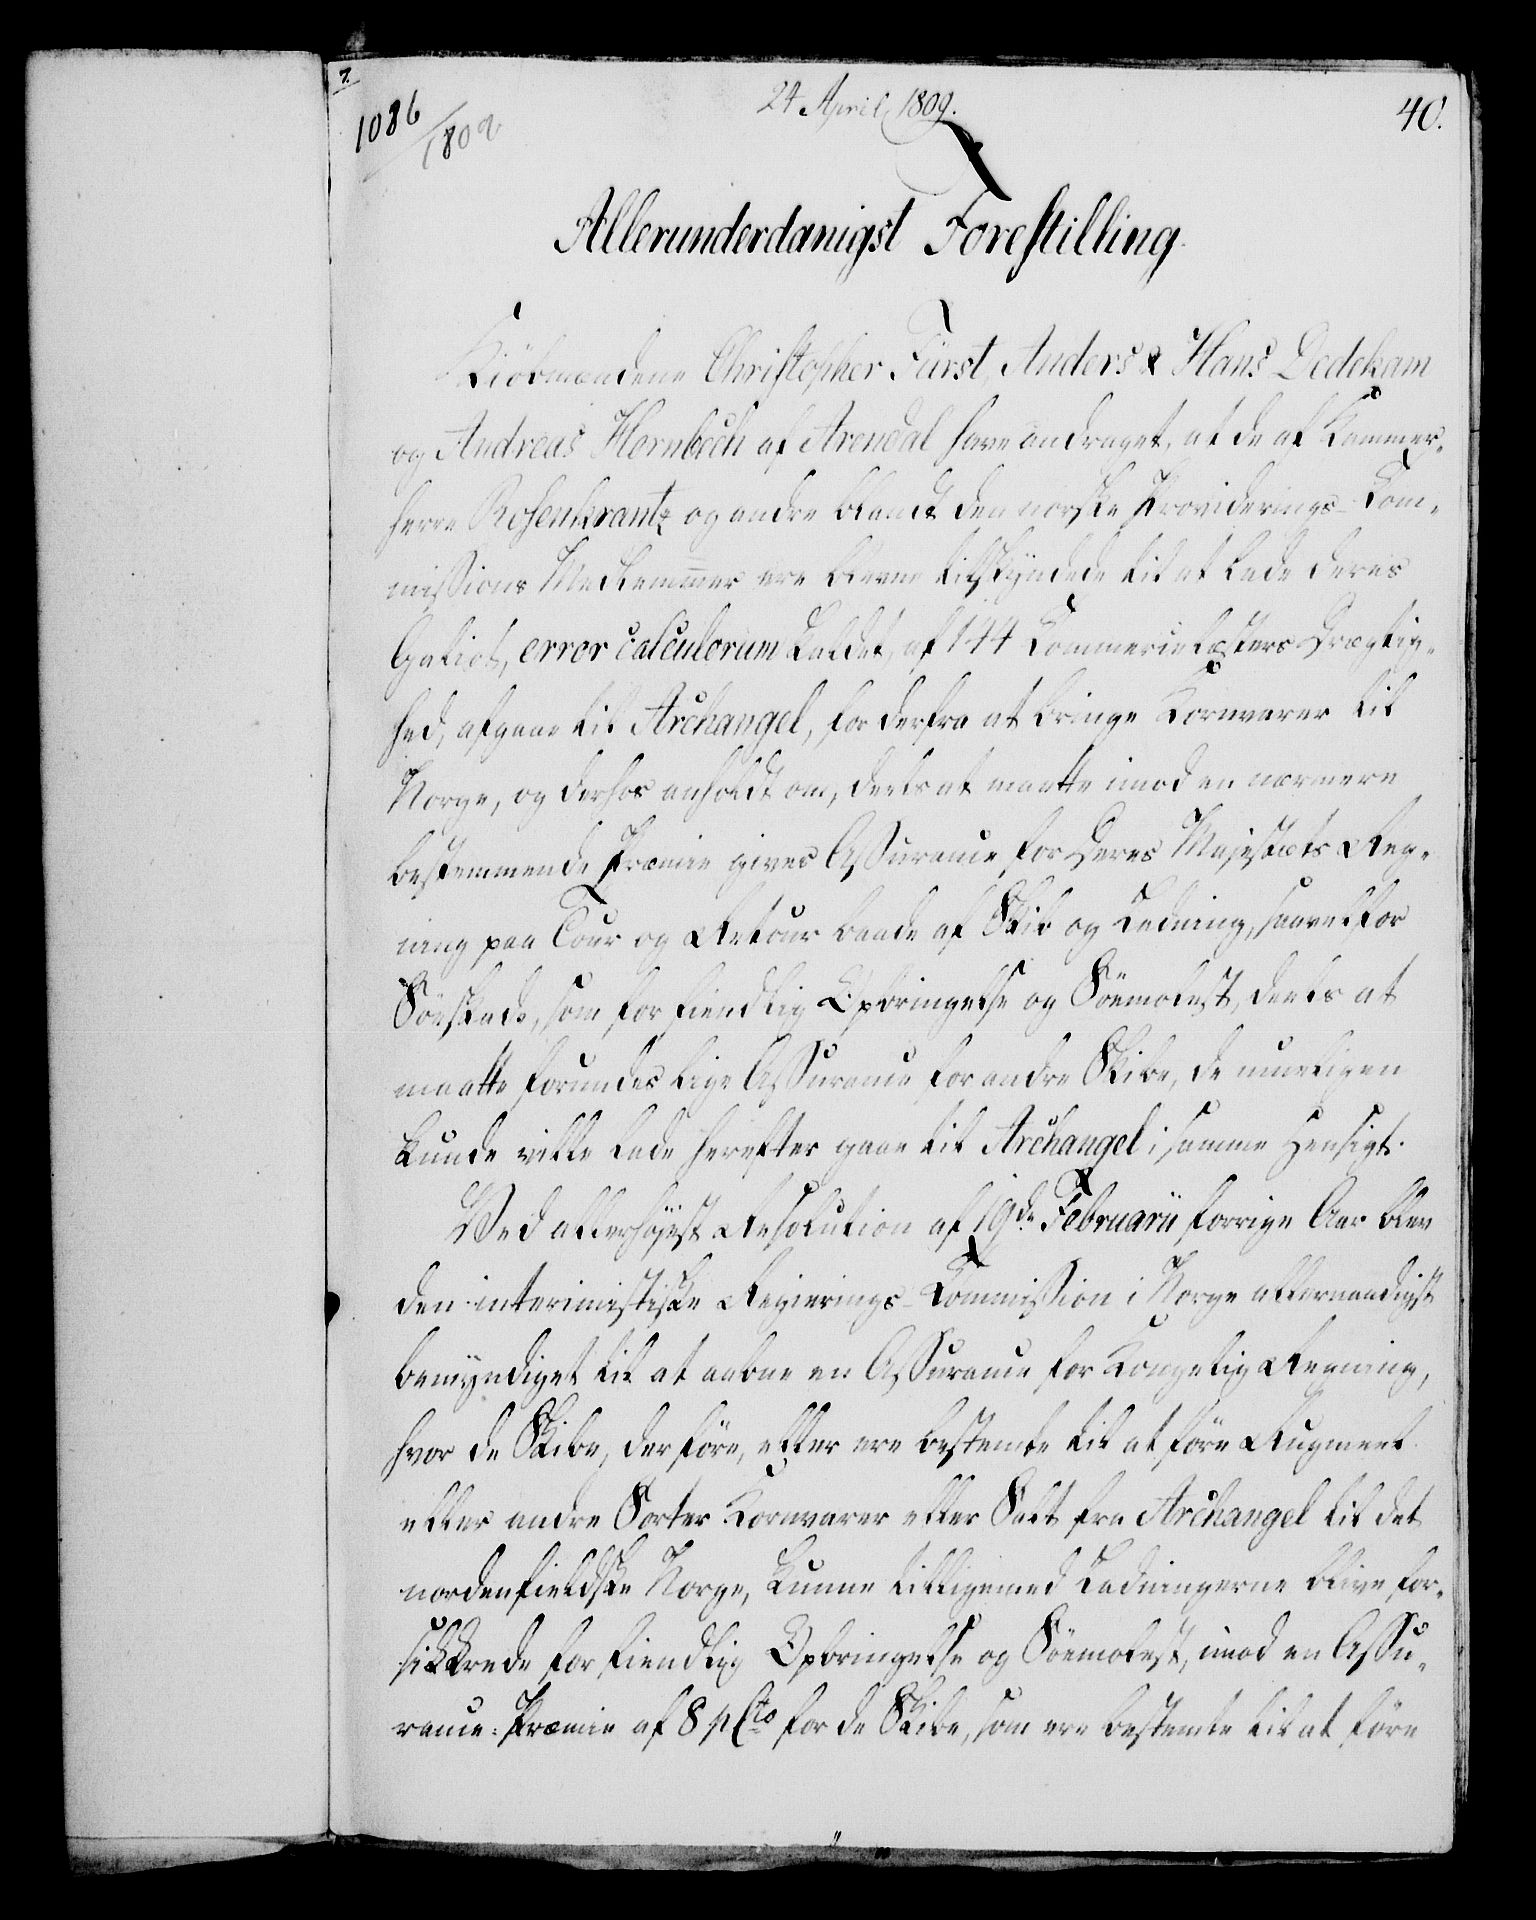 7.
24 April, 1809.
40.
1086/1809
Allerunderdanigst Forestilling.
Kiöbmændene Christopher Fürst, Anders & Hans Dedekam
og Andreas Hornbech af Arendal have andraget, at de af Kammer-
herre Rosenkrantz og andre blandt den norske Providerings-Com-
missions Medlemmer ere blevne tilskyndede til at lade deres
Galiot, error calculorum kaldet, af 144 Commercelæsters Drægtig-
hed, afgaae til Archangel, for derfra at bringe Kornvarer til
Norge, og derhos anholdt om, deels at maatte imod en nærmere
bestemmende Præmie gives Assurance for Deres Majestæts Reg-
ning paa Tour og Retour baade af Skib og Ladning, saavel for
Söeskade, som for fiendtlig Opbringelse og Söemolest, deels at
maatte forundes lige Assurance for andre Skibe, de mueligen
kunde ville lade herefter gaae til Archangel i samme Hensigt.
Ved allerhöjest Resolution af 19de Februarii forrige Aar blev
den interimistiske Regierings-Commission i Norge allernaadigst
bemyndiget til at aabne en Assurance for Kongelig Regning,
hvor de Skibe, der före, eller ere bestemte til at före Rugmeel
eller andre Sorter Kornvarer eller Salt fra Archangel til det
nordenfieldske Norge, kunne tilligemed Ladningerne blive for-
sikkrede for fiendtlig Opbringelse og Söemolest, imod en Assu-
rance-Præmie af 8 pCto for de Skibe, som ere bestemte til at före